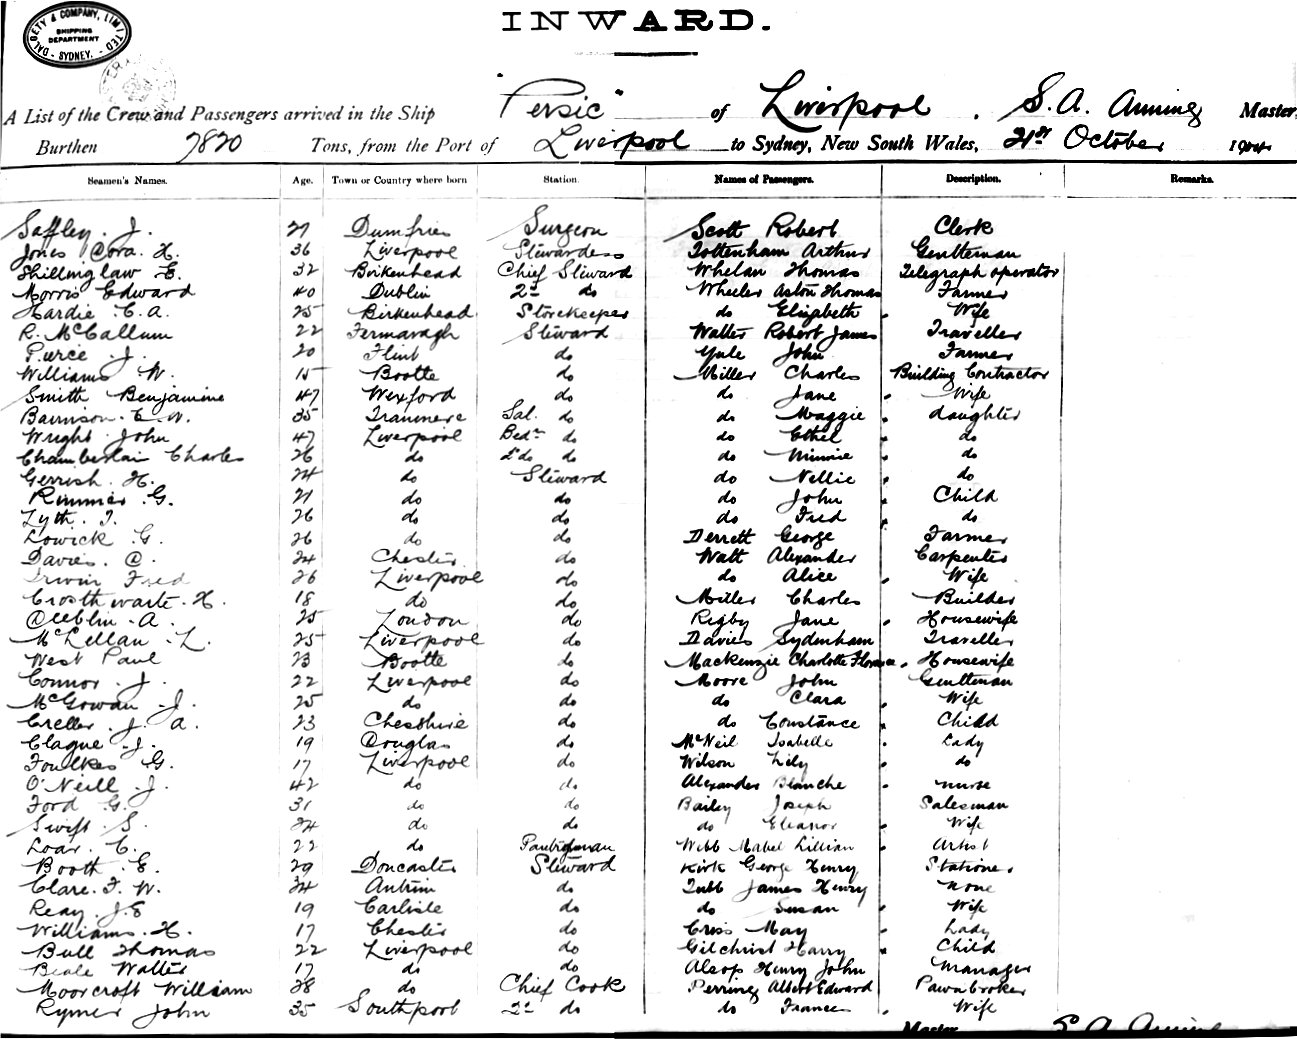 DALGETY & COMPANY, LIMITED
SHIPPING
DEPARTMENT
- SYDNEY. -
INWARD.
A List of the Crew and Passengers arrived in the Ship "Persic" of Liverpool, S. A. Master,
Burthen 7820 Tons, from the Port of Liverpool to Sydney, New South Wales, 21st October
Seamen's Names. Age. Town or Country where born Station. Names of Passengers. Description. Remarks.
J. 27 Dumfries Surgeon Scott Robert Clerk
Jones Cora H. 36 Liverpool Stewardess Tottenham Arthur Gentleman
Shillinglaw E. 32 Birkenhead Chief Steward Whelan Thomas Telegraph operator
Morris Edward 40 Dublin 2nd do Wheeler Aston Thomas Farmer
Hardie C. A. 25 Birkenhead Storekeeper do Elizabeth Wife
R. McCallum 22 Fermanagh Steward Walter Robert James Traveller
Pierce J. 20 Flint do Yule John Farmer
Williams W. 15 Bootle do Miller Charles Building Contractor
Smith Benjamine 47 Wexford do do Jane Wife
E. W. 35 Tranmere Sal. do do Maggie daughter
Wright John 47 Liverpool Bedrm do do Ethel do
Chamberlain Charles 26 do do do do Minnie do
Gerrish H. 24 do Steward do Nellie do
Rimmer G. 21 do do do John Child
Lyth. T. 26 do do do Fred do
Lowick G. 26 do do Derrett George Farmer
Davies. 24 Chester do Watt Alexander Carpenter
Irwin Fred 26 Liverpool do do Alice Wife
Crosthwaite. H. 18 do do Miller Charles Builder
A. 25 London do Rigby Jane Housewife
McLellan L. 25 Liverpool do Davies Sydenham Traveller
West Paul 23 Bootle do Mackenzie Charlotte Florence Housewife
Connor J. 22 Liverpool do Moore John Gentleman
McGowan J. 25 do do do Clara Wife
Creller J. A. 23 Chesshire do do Constance Child
Clague J. 19 Douglas do McNeil Isabelle Lady
Foulkes G. 17 Liverpool do Wilson Lily do
O'Neill J. 42 do do Alexander Blanche nurse
Ford G. 31 do do Bailey Joseph Salesman
Swift S. 24 do do do Eleanor Wife
Loar. C. 22 do Pantryman Webb Mabel Lillian Artist
Booth E. 29 Doncaster Steward Kirk George Henry Stationer
Clare. F. W. 24 Antrim do Tubb James Henry none
Reay. J. E 19 Carlisle do do Susan Wife
Williams. H. 17 Chester do Criss May Lady
Bull Thomas 22 Liverpool do Gilchrist Harry Child
Beale Walter 17 do do Alsop Henry John Manager
Moorcroft William 38 do Chief Cook Perring Albert Edward Pawnbroker
Rymer John 35 Southport 2nd do do Frances Wife
Master S. A.